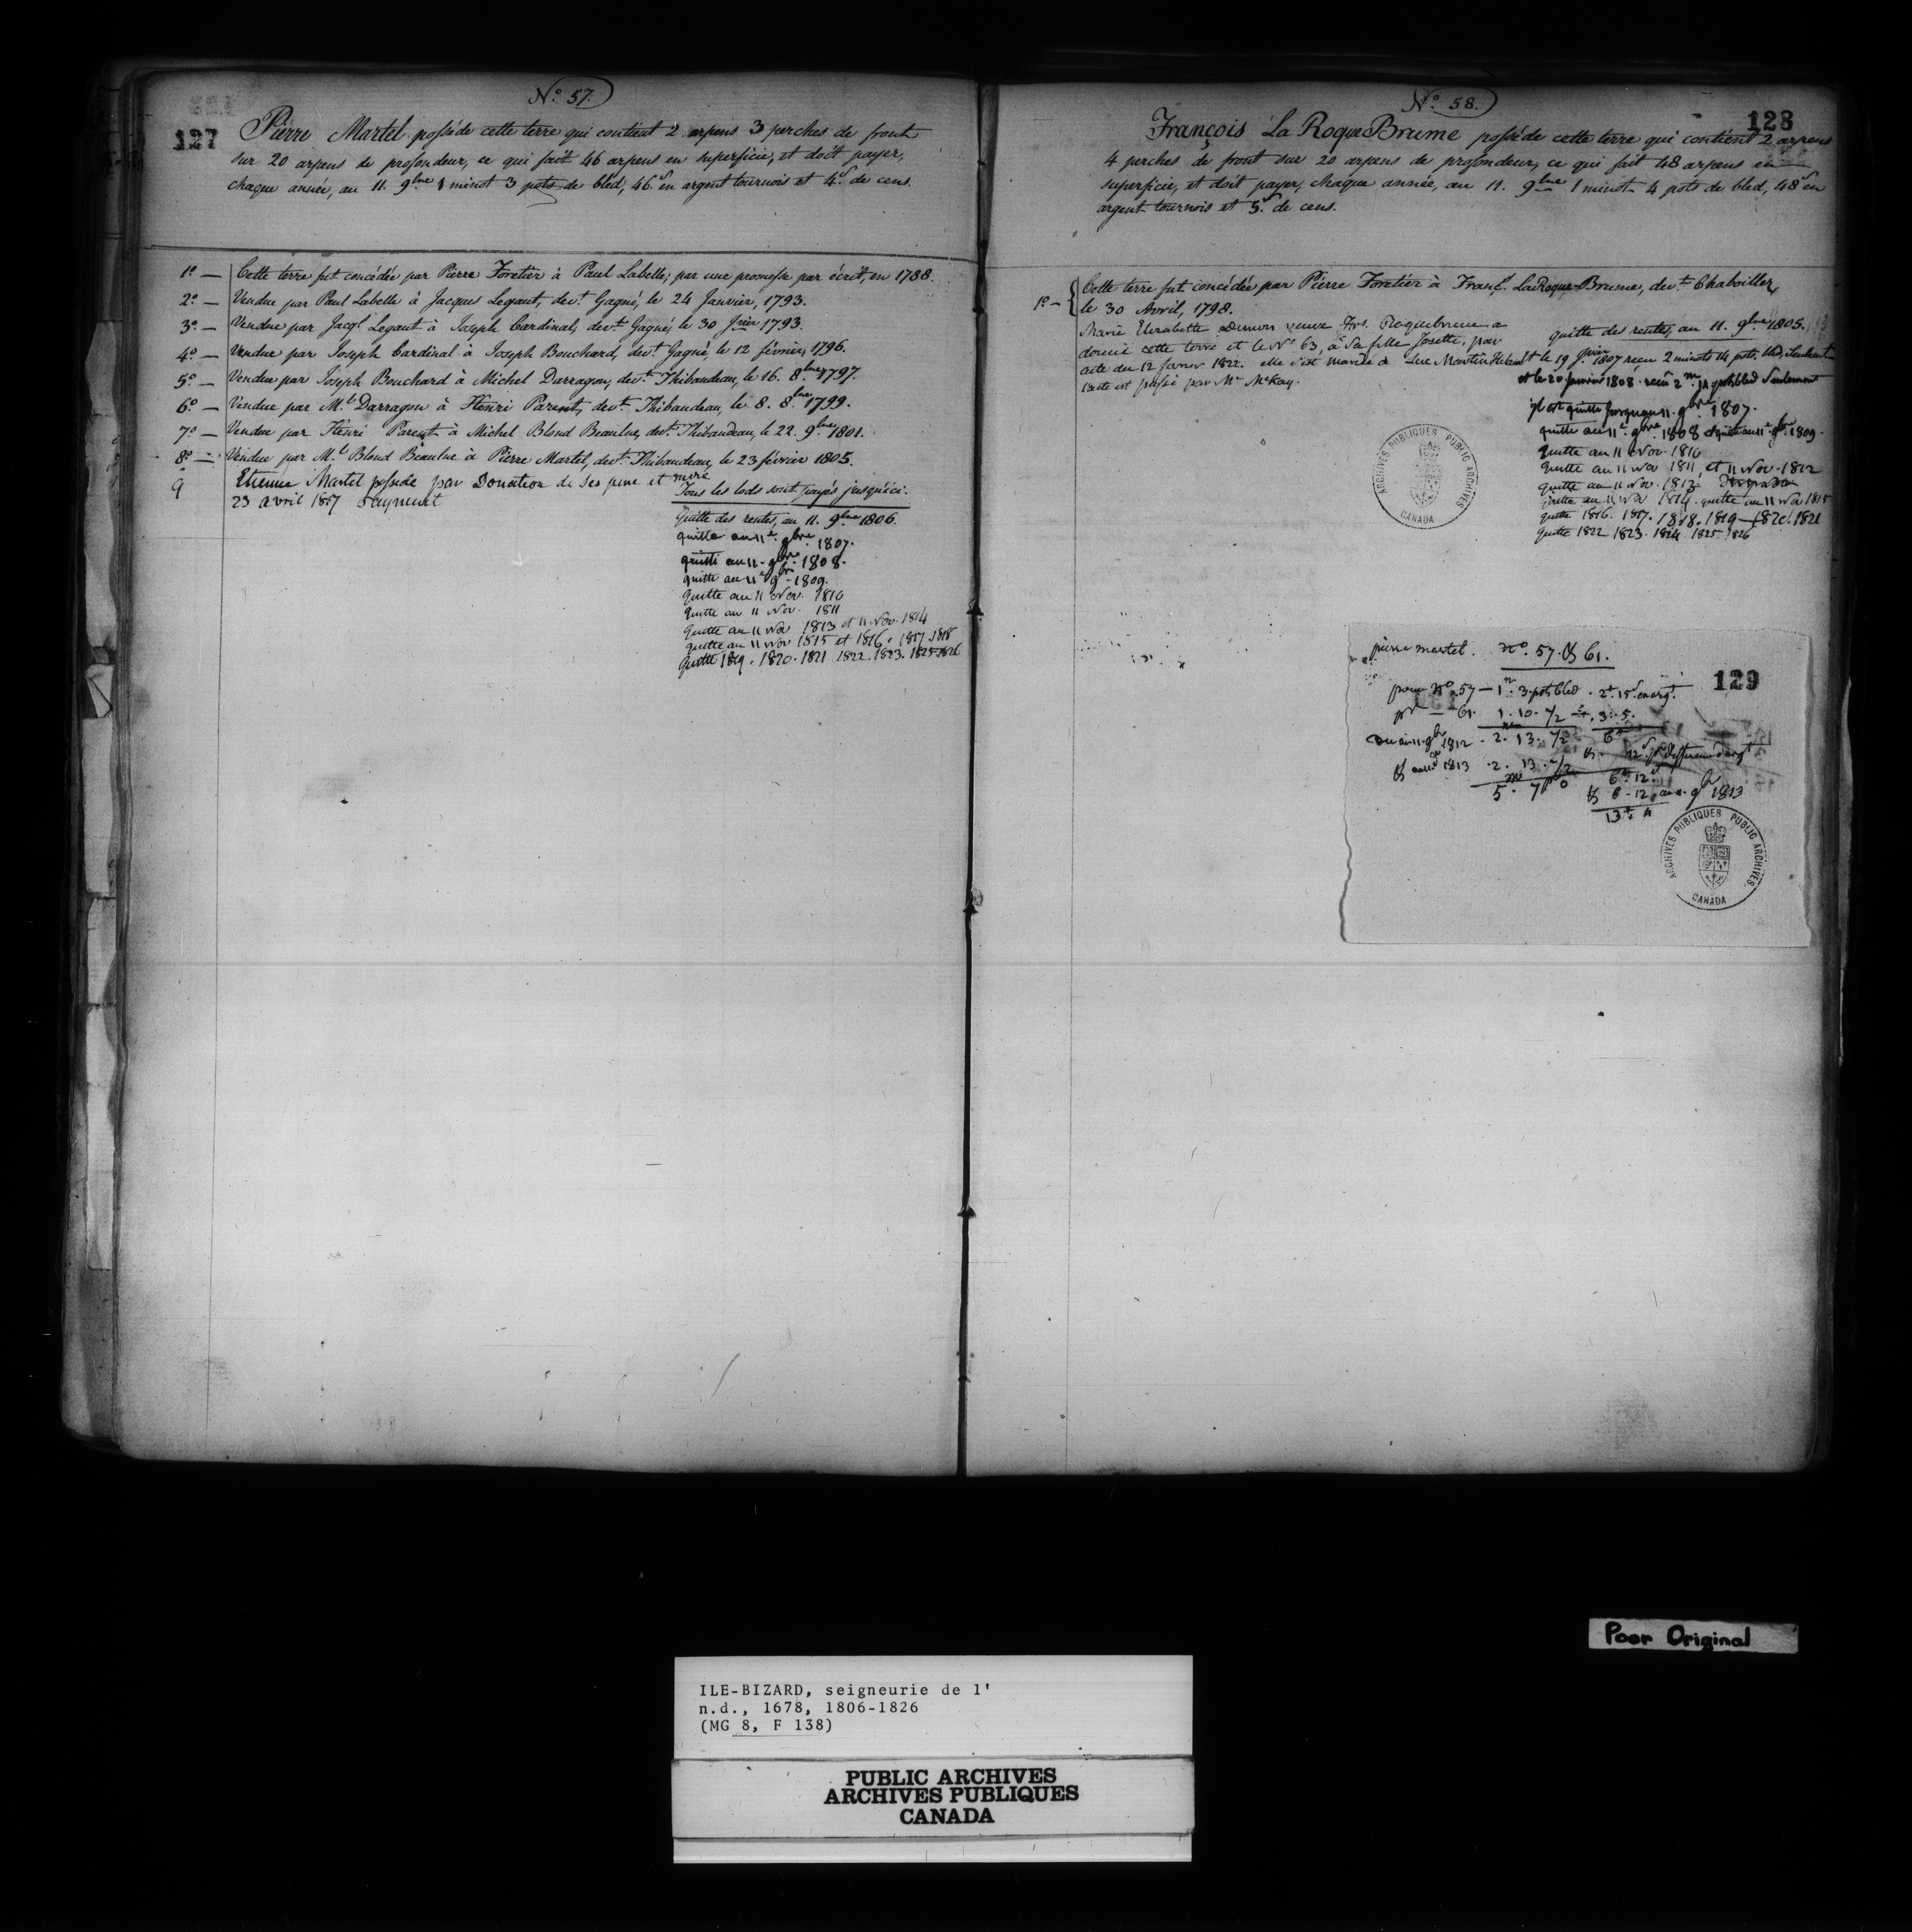 N.o 57.
127
Pierre Martel posséde cette terre qui contient 2 arpens 3 perches de front
sur 20 arpens de profondeur, ce qui fait 46 arpens en superficie, et doit payer,
chaque année, au 11. 9bre 1 minot 3 pots de bled, 46.s en argent tournois et 4.s de cens.
1.o — Cette terre fut concédée par Pierre Foretier à Paul Labelle, par une promesse par écrit, en 1788.
2.o — Vendue par Paul Labelle à Jacques Legaut, dev.t Gagné, le 24 Janvier, 1793.
3.o — Vendue par Jacq.s Legaut à Joseph Cardinal, dev.t Gagné, le 30 1793.
4.o — Vendue par Joseph Cardinal à Joseph Bouchard, dev.t Gagné, le 12 février, 1796.
5.o — Vendue par Joseph Bouchard à Michel Darragon, dev.t Thibaudeau, le 16. 8.bre 1797.
6.o — Vendue par M.l Darragon à Henri Parent, dev.t Thibaudeau, le 8. 8.bre 1799.
7.o — Vendue par Henri Parent à Michel Blond Beaulne, dev.t Thibaudeau, le 22. 9.bre 1801.
8.o — Vendue par M.l Blond Beaulne à Pierre Martel, dev.t Thibaudeau, le 23 février 1805.
9 Etienne Martel possede par Donation de ses pere et mere
23 avril 1817 Payment
Tous les lods sont payés jusqu'ici.
Quitte des rentes, au 11. 9.bre 1806.
quitte au 11.e 9bre. 1807.
quitte au 11. 9bre. 1808.
quitte au 11.e 9br - 1809.
Quitte au 11 Nov. 1810
Quitte au 11 Nov. 1811
Quitte au 11 Nov 1813 et 11 Nov. 1814
quitte au 11 Nov 1815 et 1816. 1817. 1818
Quitte 1819. 1820. 1821 1822. 1823. 1825 1826
N.o 58.
128
François La RoqueBrume posséde cette terre qui contient 2 arpens
4 perches de front sur 20 arpens de profondeur, ce qui fait 48 arpens en
superficie, et doit payer, chaque année, au 11. 9bre 1 minot 4 pots de bled, 48s en
argent tournois et 5.s de cens.
1.o — Cette terre fut concédée par Pierre Foretier à Franç.s LaRoque-Brume, dev.t Chaboillez,
le 30 Avril, 1798.
Marie Elizabette Dumon veuve Frs. Roquebrune a
donné cette terre et le No 63, à sa fille Josette, par
acte du 12 Janvr 1822. elle s'est mariée à Luc Martin
l'acte est passé par Mr McKay.
quitte des rentes, au 11. 9bre 1805.
et le 19 1807 reçu 2 minots 14 pots bled, seulement
et le 20 janvier 1808. reçu 2 m. 14 pots bled seulement
il est quitte jusqu'au 11. 9bre. 1807.
quitte au 11e. 9bre. 1808 et quitte au 11e 9br. 1809.
Quitte au 11 Nov. 1810
Quitte au 11 Nov 1811, et 11 Nov. 1812
Quitte au 11 Nov. 1813.
Quitte au 11 Nov 1814. quitte au 11 Nov 1815
Quitte 1816. 1817. 1818. 1819 — 1820. 1821
Quitte 1822 1823. 1824 1825. 1826
ARCHIVES PUBLIQUES PUBLIC ARCHIVES
CANADA
pierre martel. No. 57. & 61.
129
pour No. 57 — 1m. 3. pots bled. 2# 15s. en argt.
pr — 61. 1. 10. 1/2 3. 5.
au 11. 9br 1812. 2. 13. 1/2 6#
& 12s pr
& au 11. 9br 1813. 2. 13. 1/2 6# 12s
5. 7 0 & 6 - 12 au 11. 9br 1813
13# 4
ARCHIVES PUBLIQUES PUBLIC ARCHIVES
CANADA
Poor Original
ILE-BIZARD, seigneurie de l'
n.d., 1678, 1806-1826
(MG 8, F 138)
PUBLIC ARCHIVES
ARCHIVES PUBLIQUES
CANADA